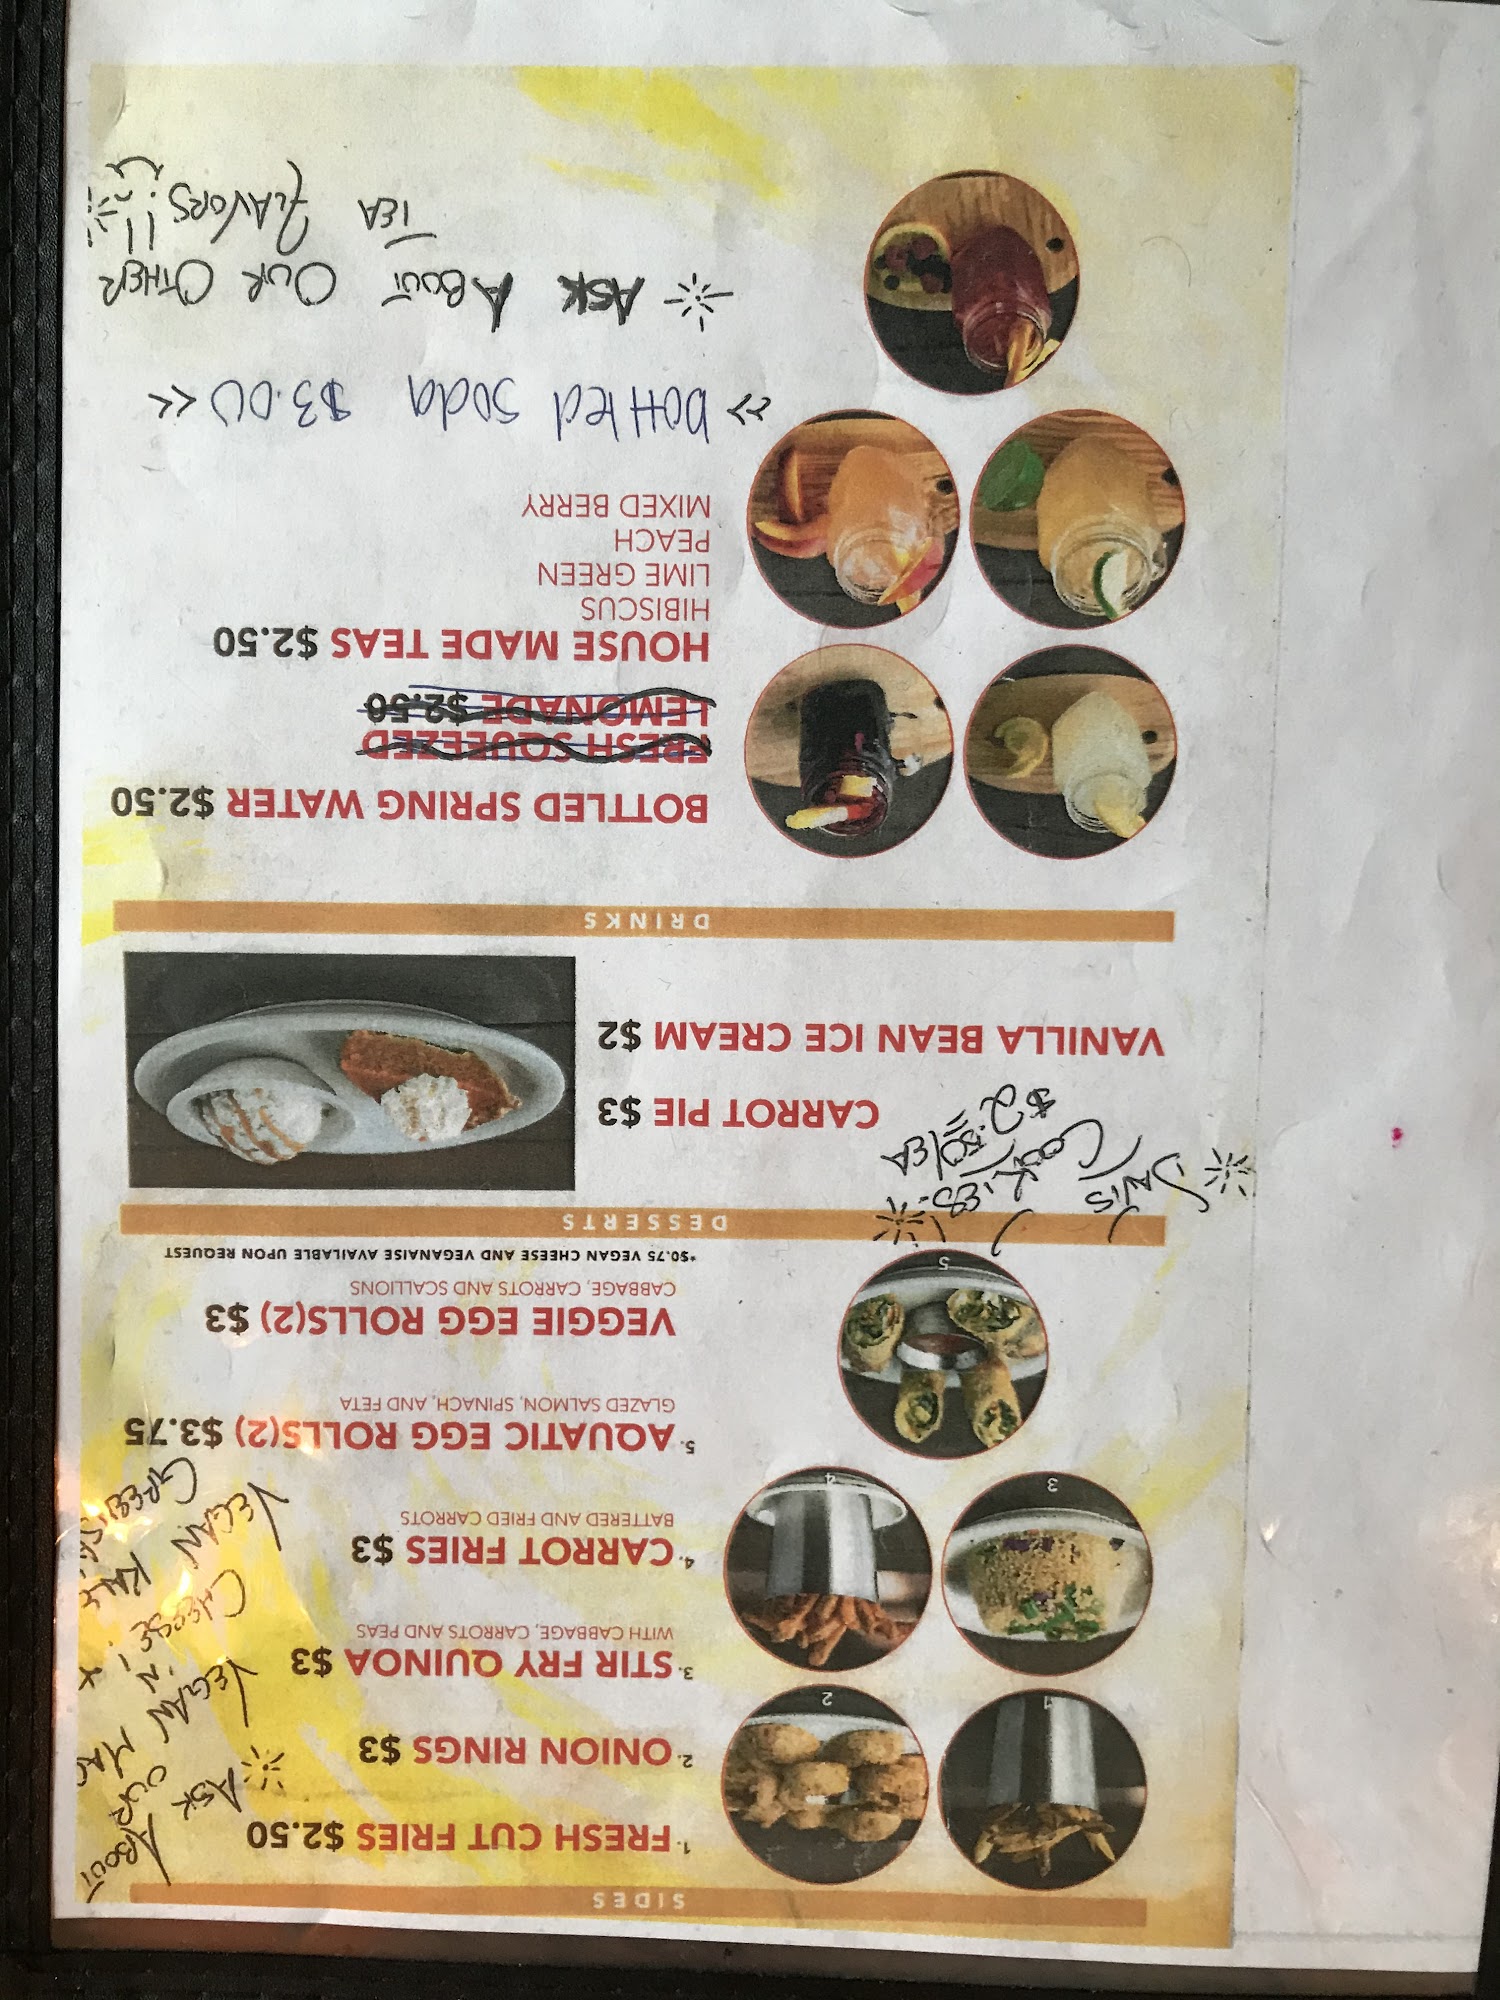 SIDES
1. FRESH CUT FRIES $2.50
2. ONION RINGS $3
3. STIR FRY QUINOA $3
WITH CABBAGE, CARROTS AND PEAS
4. CARROT FRIES $3
BATTERED AND FRIED CARROTS
5. AQUATIC EGG ROLLS(2) $3.75
GLAZED SALMON, SPINACH, AND FETA
VEGGIE EGG ROLLS(2) $3
CABBAGE, CARROTS AND SCALLIONS
*$0.75 VEGAN CHEESE AND VEGANAISE AVAILABLE UPON REQUEST
1
2
3
4
5
ASK ABOUT
OUR
VEGAN MAC
N
CHEESE! +
VEGAN KALE
GREENS
DESSERTS
DAVIS
COOKIES
$2.50/EA
CARROT PIE $3
VANILLA BEAN ICE CREAM $2
DRINKS
BOTTLED SPRING WATER $2.50
FRESH SQUEEZED
LEMONADE $2.50
HOUSE MADE TEAS $2.50
HIBISCUS
LIME GREEN
PEACH
MIXED BERRY
>> bottled soda $3.00 <<
ASK ABOUT OUR OTHER
TEA FLAVORS !!